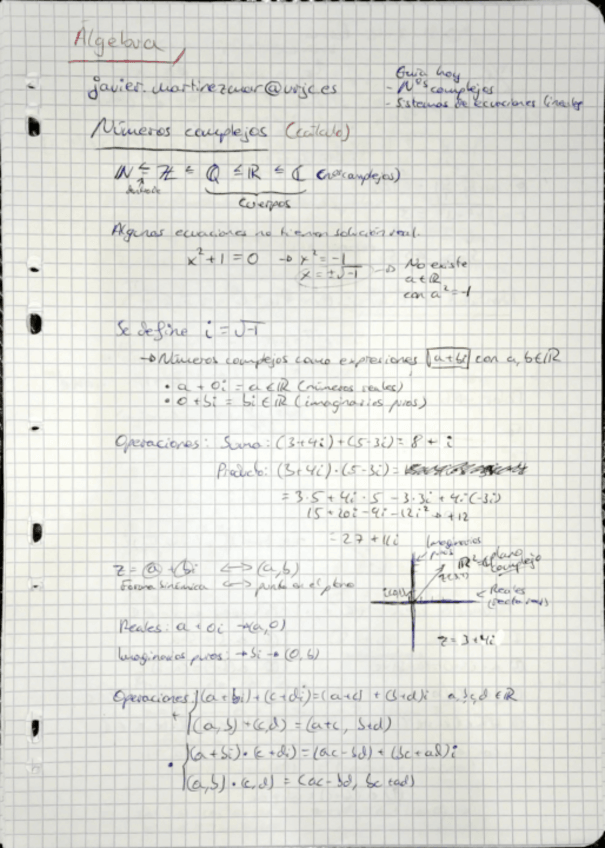 Álgebra
javier.martinezmar@urjc.es
Guía hoy
- Nos complejos
- Sistemas de ecuaciones lineales
Números complejos (cálculo)
ℕ ⊆ ℤ ⊆ ℚ ⊆ ℝ ⊆ ℂ (complejos)
Cuerpos
Algunas ecuaciones no tienen solución real
x² + 1 = 0 → x² = -1
x = ±√-1
→ No existe
a ∈ ℝ
con a² = -1
Se define i = √-1
→ Números complejos como expresiones a+bi con a, b ∈ ℝ
• a + 0i = a ∈ ℝ (números reales)
• 0 + bi = bi ∈ ℝ (imaginarios puros)
Operaciones: Suma: (3+4i) + (5-3i) = 8 + i
Producto: (3+4i) · (5-3i) =
= 3·5 + 4i·5 - 3·3i + 4i(-3i)
15 + 20i - 9i - 12i² → +12
= 27 + 11i
z = a + bi ↔ (a, b)
Forma binómica ↔ punto en el plano
Imaginarios
puros
ℝ² plano
complejo
Reales
z = 3+4i
Reales: a + 0i → (a, 0)
Imaginarios puros: → bi → (0, b)
Operaciones (a+bi) + (c+di) = (a+c) + (b+d)i a, b, c, d ∈ ℝ
+ (a, b) + (c, d) = (a+c, b+d)
(a+bi) · (c+di) = (ac-bd) + (bc+ad)i
• (a, b) · (c, d) = (ac-bd, bc+ad)